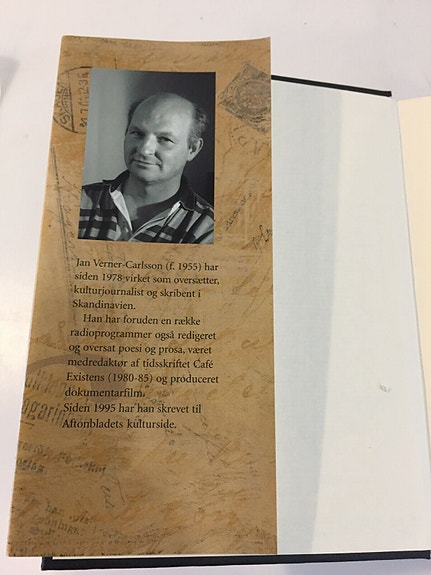 Jan Verner-Carlsson (f. 1955) har
siden 1978 virket som oversætter,
kulturjournalist og skribent i
Skandinavien.
Han har foruden en række
radioprogrammer også redigeret
og oversat poesi og prosa, været
medredaktør af tidsskriftet Café
Existens (1980-85) og produceret
dokumentarfilm.
Siden 1995 har han skrevet til
Aftonbladets kulturside.